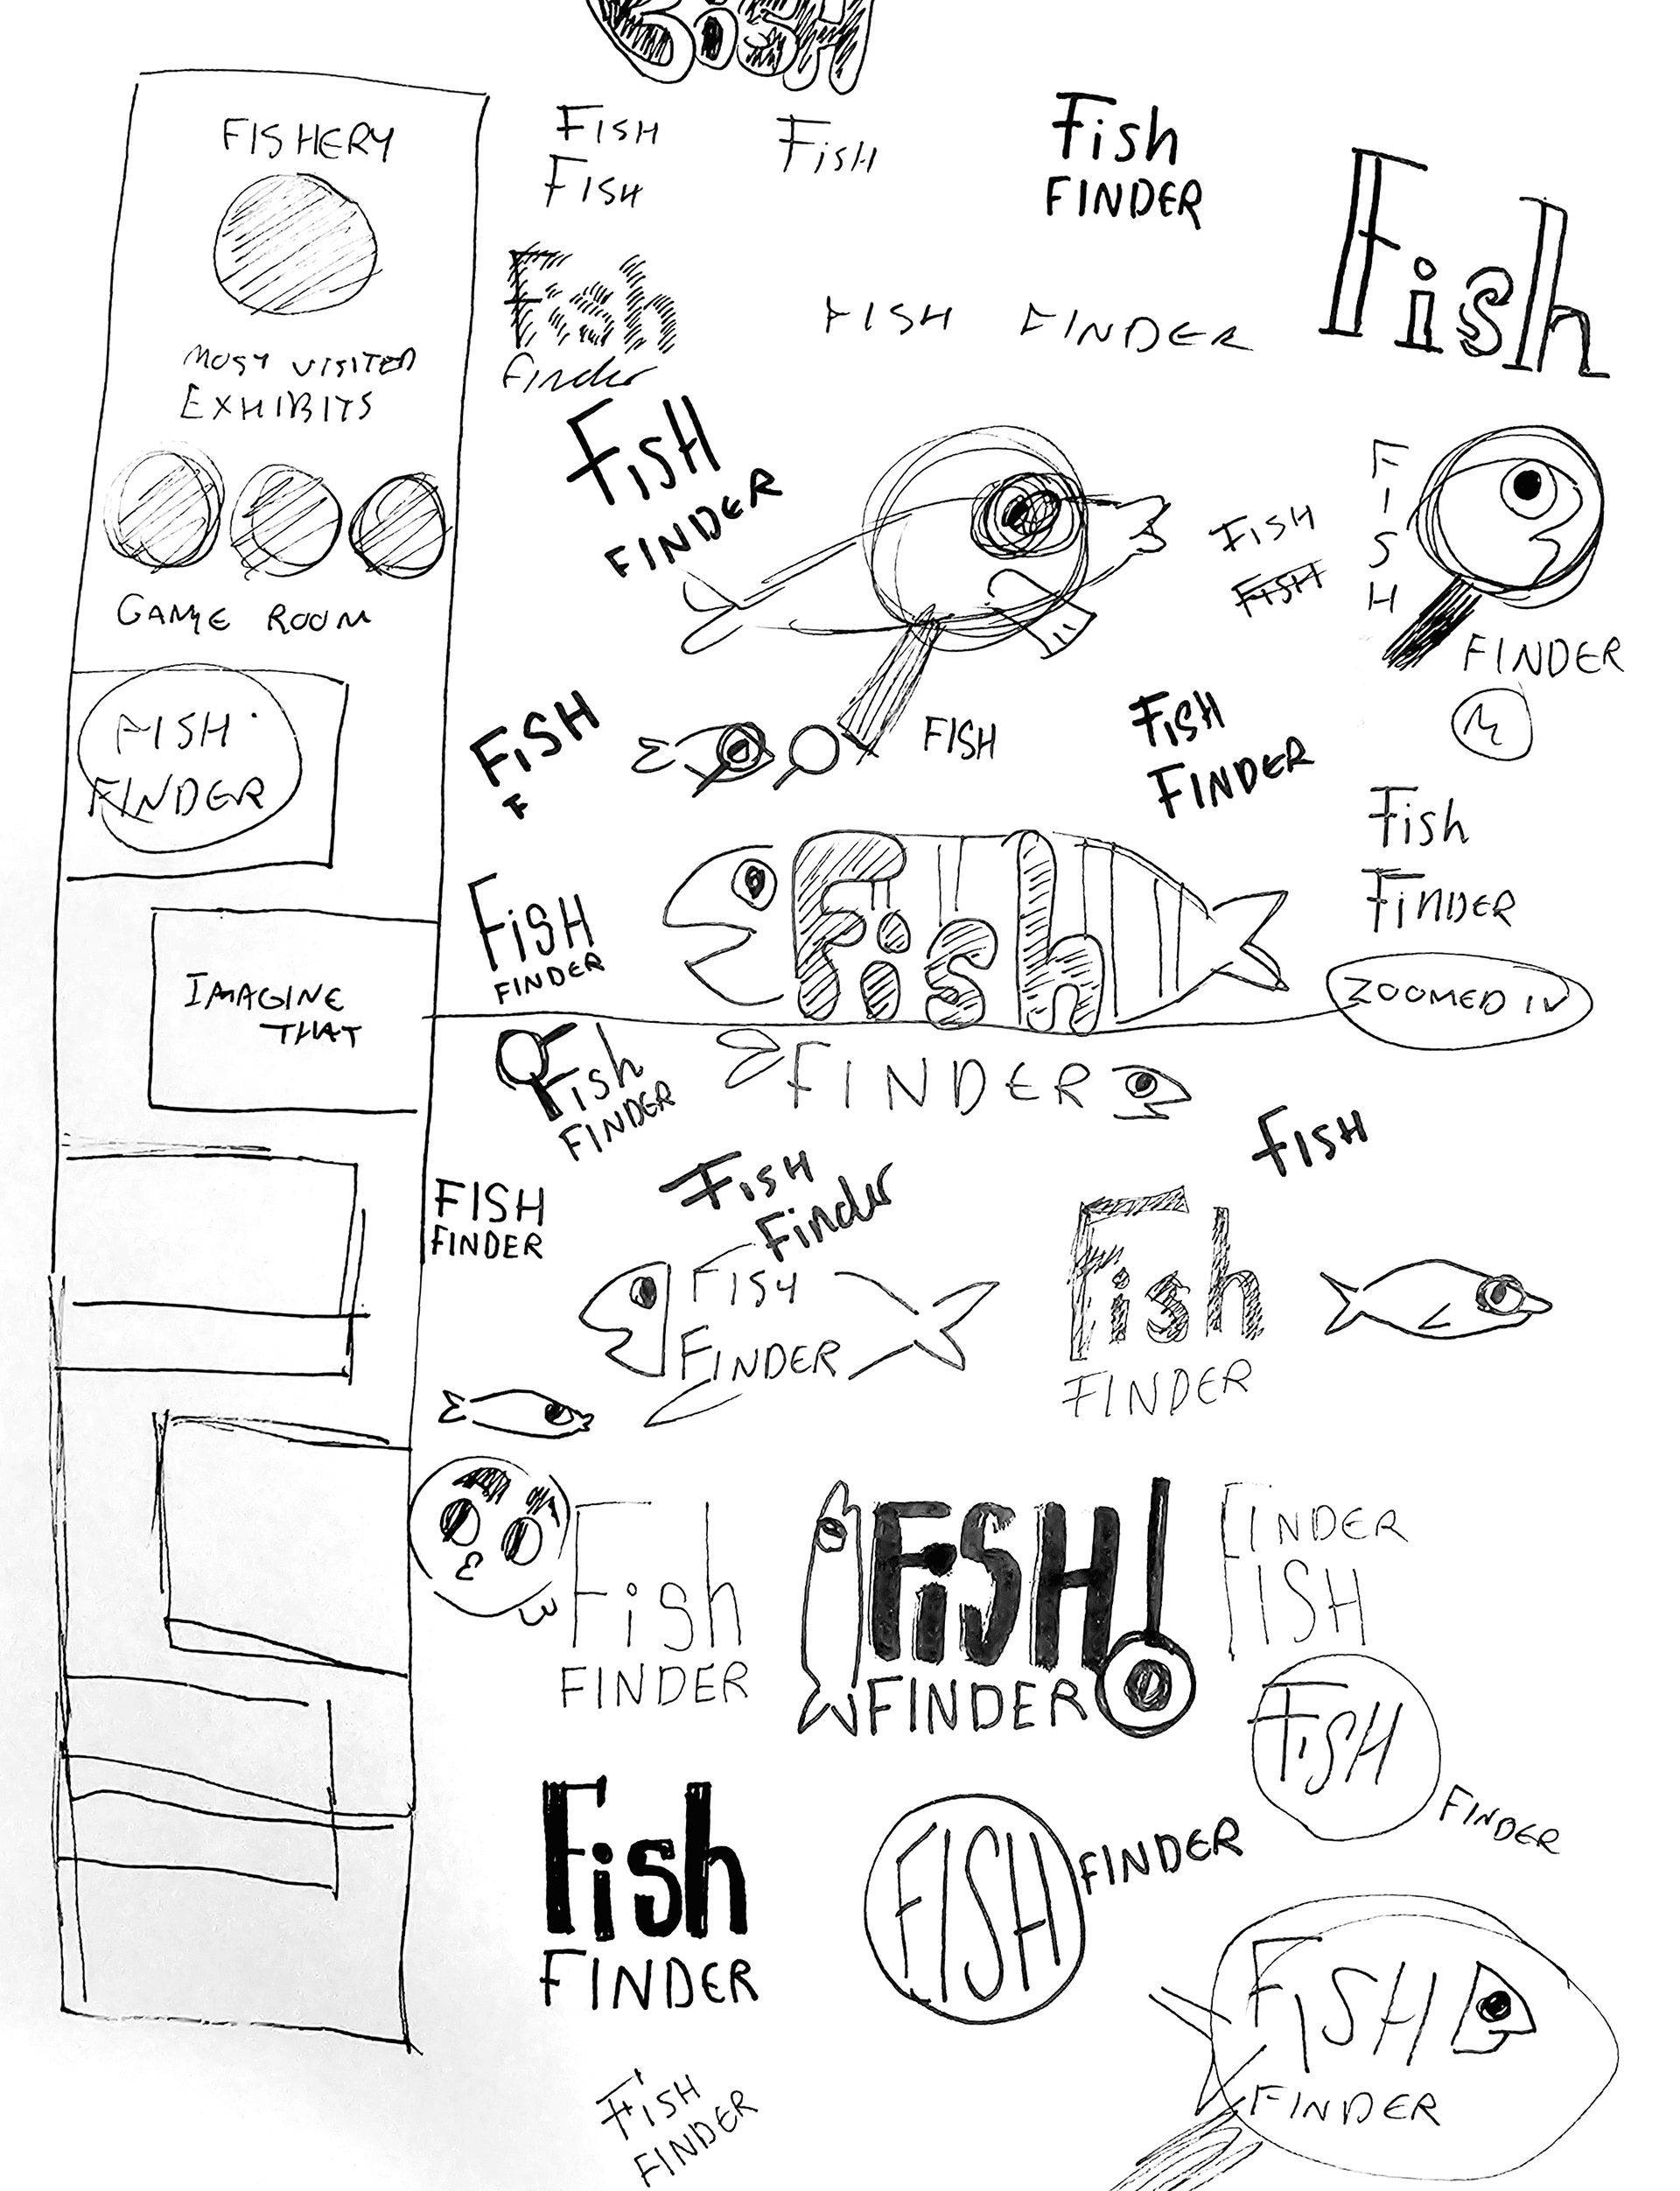 FISH
FISHERY
MOST VISITED
EXHIBITS
GAME ROOM
FISH
FINDER
IMAGINE
THAT
FISH
FISH
FiSH
Fish
FINDER
Fish
Fish
finder
FISH FINDER
FiSH
FINDER
FiSH
FiSH
FISH
FINDER
M
FiSH
F
FISH
FiSH
FINDER
Fish
FiNDER
FiSH
FINDER
Fish
FINDER
ZOOMED IN
Fish
FINDER
FiSH
FISH
FINDER
FiSH
Finder
FISH
FINDER
Fish
FINDER
Fish
FINDER
FiSH!
FINDER
FINDER
FISH
FiSH
FINDER
Fish
FINDER
FISH
FINDER
FISH
FINDER
FiSH
FINDER